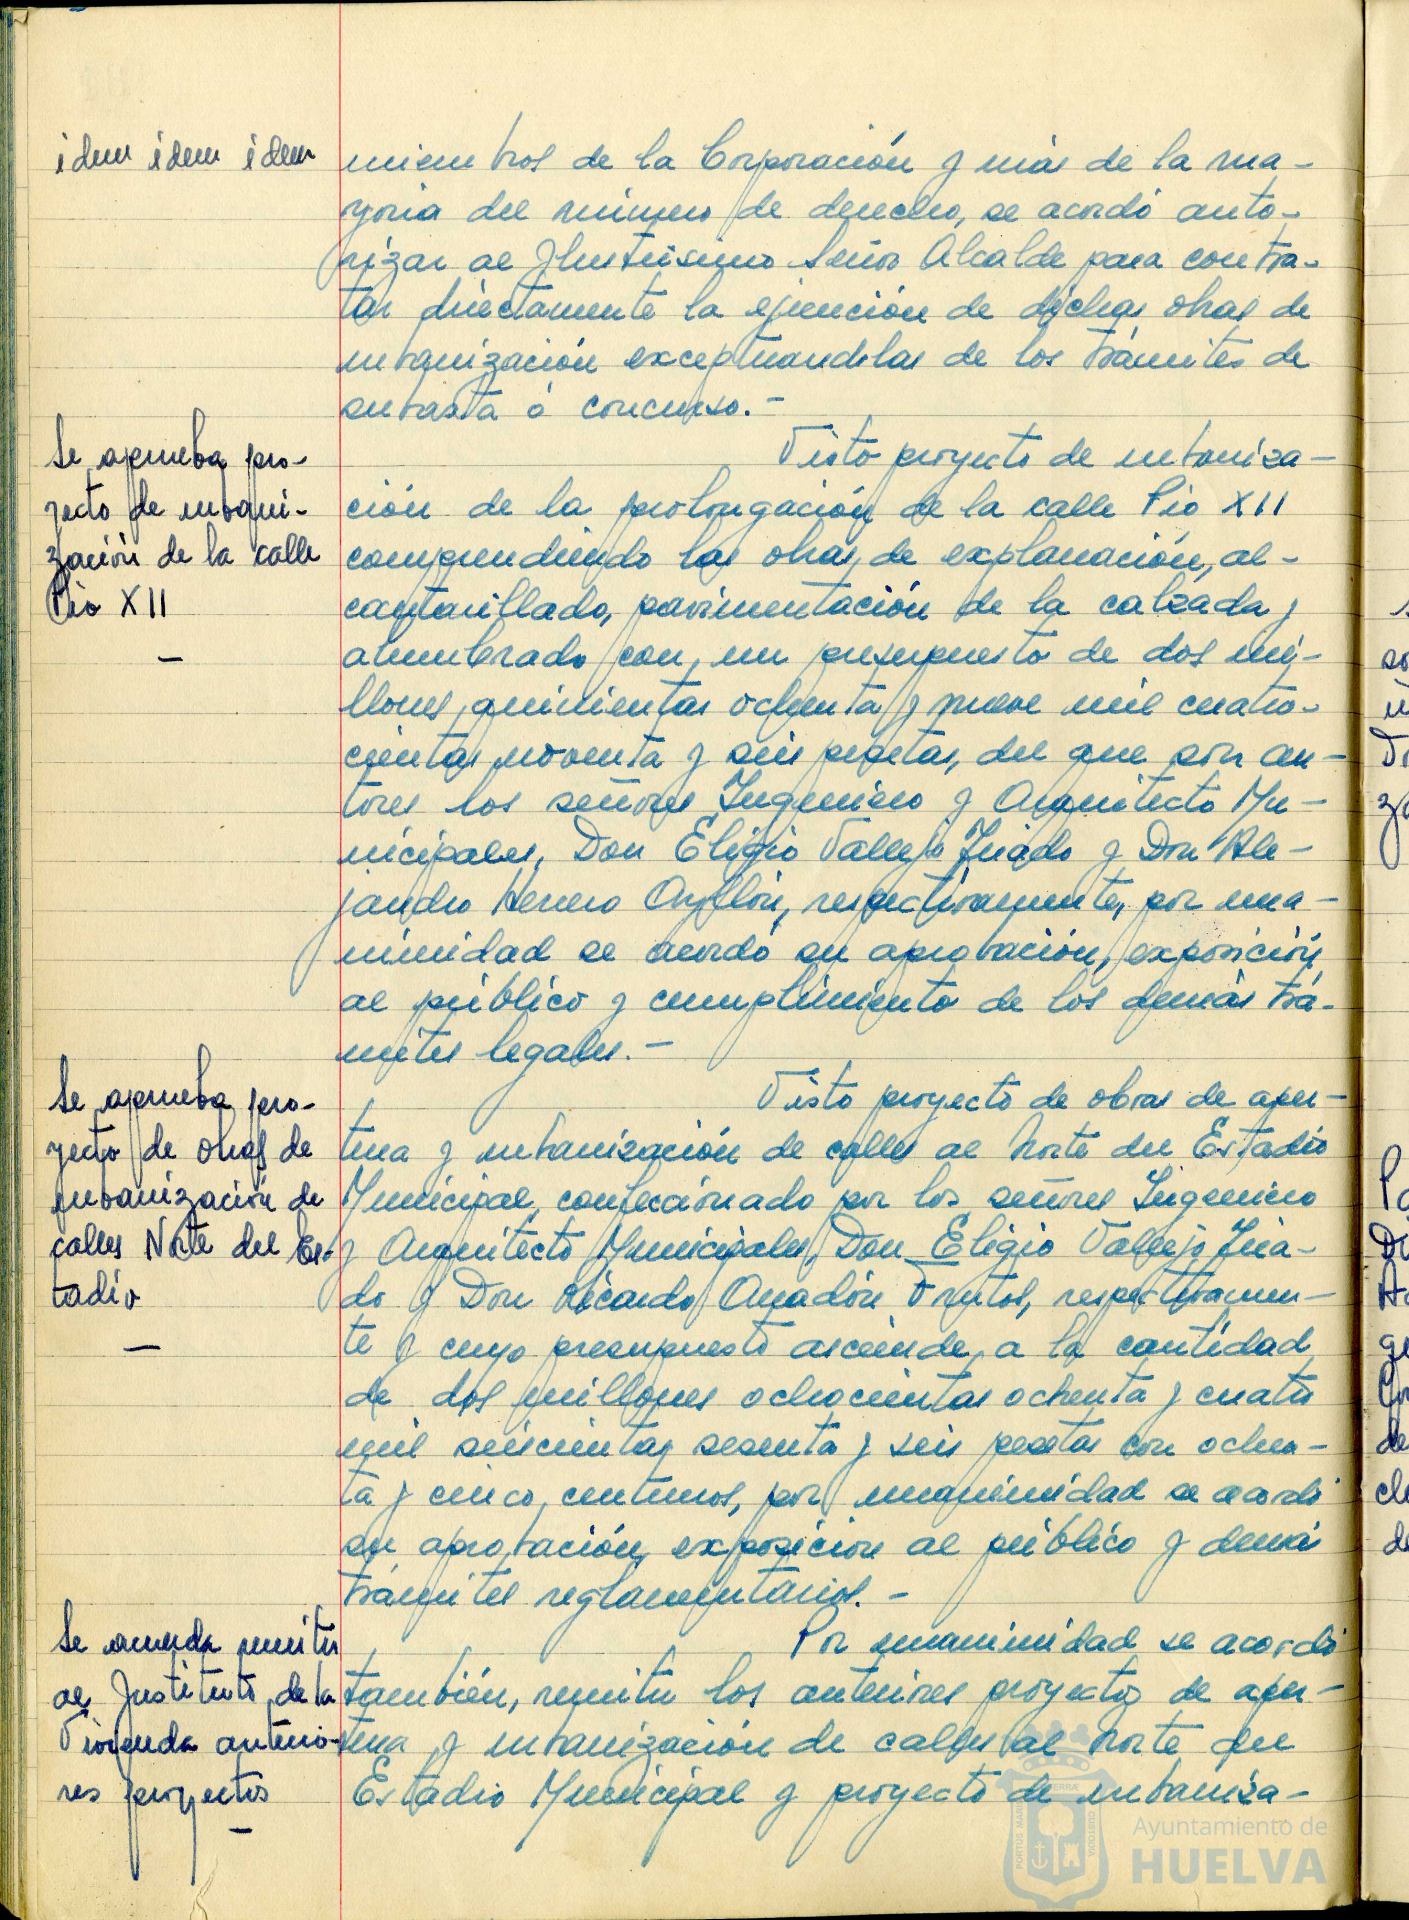 idem idem idem
miembros de la Corporación y más de la ma-
yoria del número de derecho, se acordó auto-
rizar al Ilustrisimo Señor Alcalde para contra-
tar directamente la ejecución de dichas obras de
urbanización exceptuandolas de los trámites de
subasta ó concurso.-
Se aprueba pro-
yecto de urbani-
zación de la calle
Pio XII
—
Visto proyecto de urbaniza-
ción de la prolongación de la calle Pio XII
comprendiendo las obras de explanación, al-
cantarillado, pavimentación de la calzada y
alumbrado con un presupuesto de dos mi-
llones quinientas ochenta y nueve mil cuatro-
cientas noventa y seis pesetas, del que son au-
tores los señores Ingeniero y Arquitecto Mu-
nicipales, Don Eligio Vallejo Triado y Don Ale-
jandro Herrero Ayllón, respectivamente, por una-
nimidad se acordó su aprobación, exposición
al público y cumplimiento de los demás trá-
mites legales.-
Se aprueba pro-
yecto de obras de
urbanización de
calles Norte del Es-
tadio
—
Visto proyecto de obras de aper-
tura y urbanización de calles al Norte del Estadio
Municipal, confeccionado por los señores Ingeniero
y Arquitecto Municipales, Don Eligio Vallejo Tria-
do y Don Ricardo Anadón Frutos, respectivamen-
te y cuyo presupuesto asciende a la cantidad
de dos millones ochocientas ochenta y cuatro
mil seiscientas sesenta y seis pesetas con ochen-
ta y cinco centimos, por unanimidad se acordó
su aprobación, exposición al público y demás
trámites reglamentarios.-
Se acuerda remitir
al Instituto de la
Vivienda anterio-
res proyectos
—
Por unanimidad se acordó
también, remitir los anteriores proyectos de aper-
tura y urbanización de calles al Norte del
Estadio Municipal y proyecto de urbaniza-
Ayuntamiento de
HUELVA